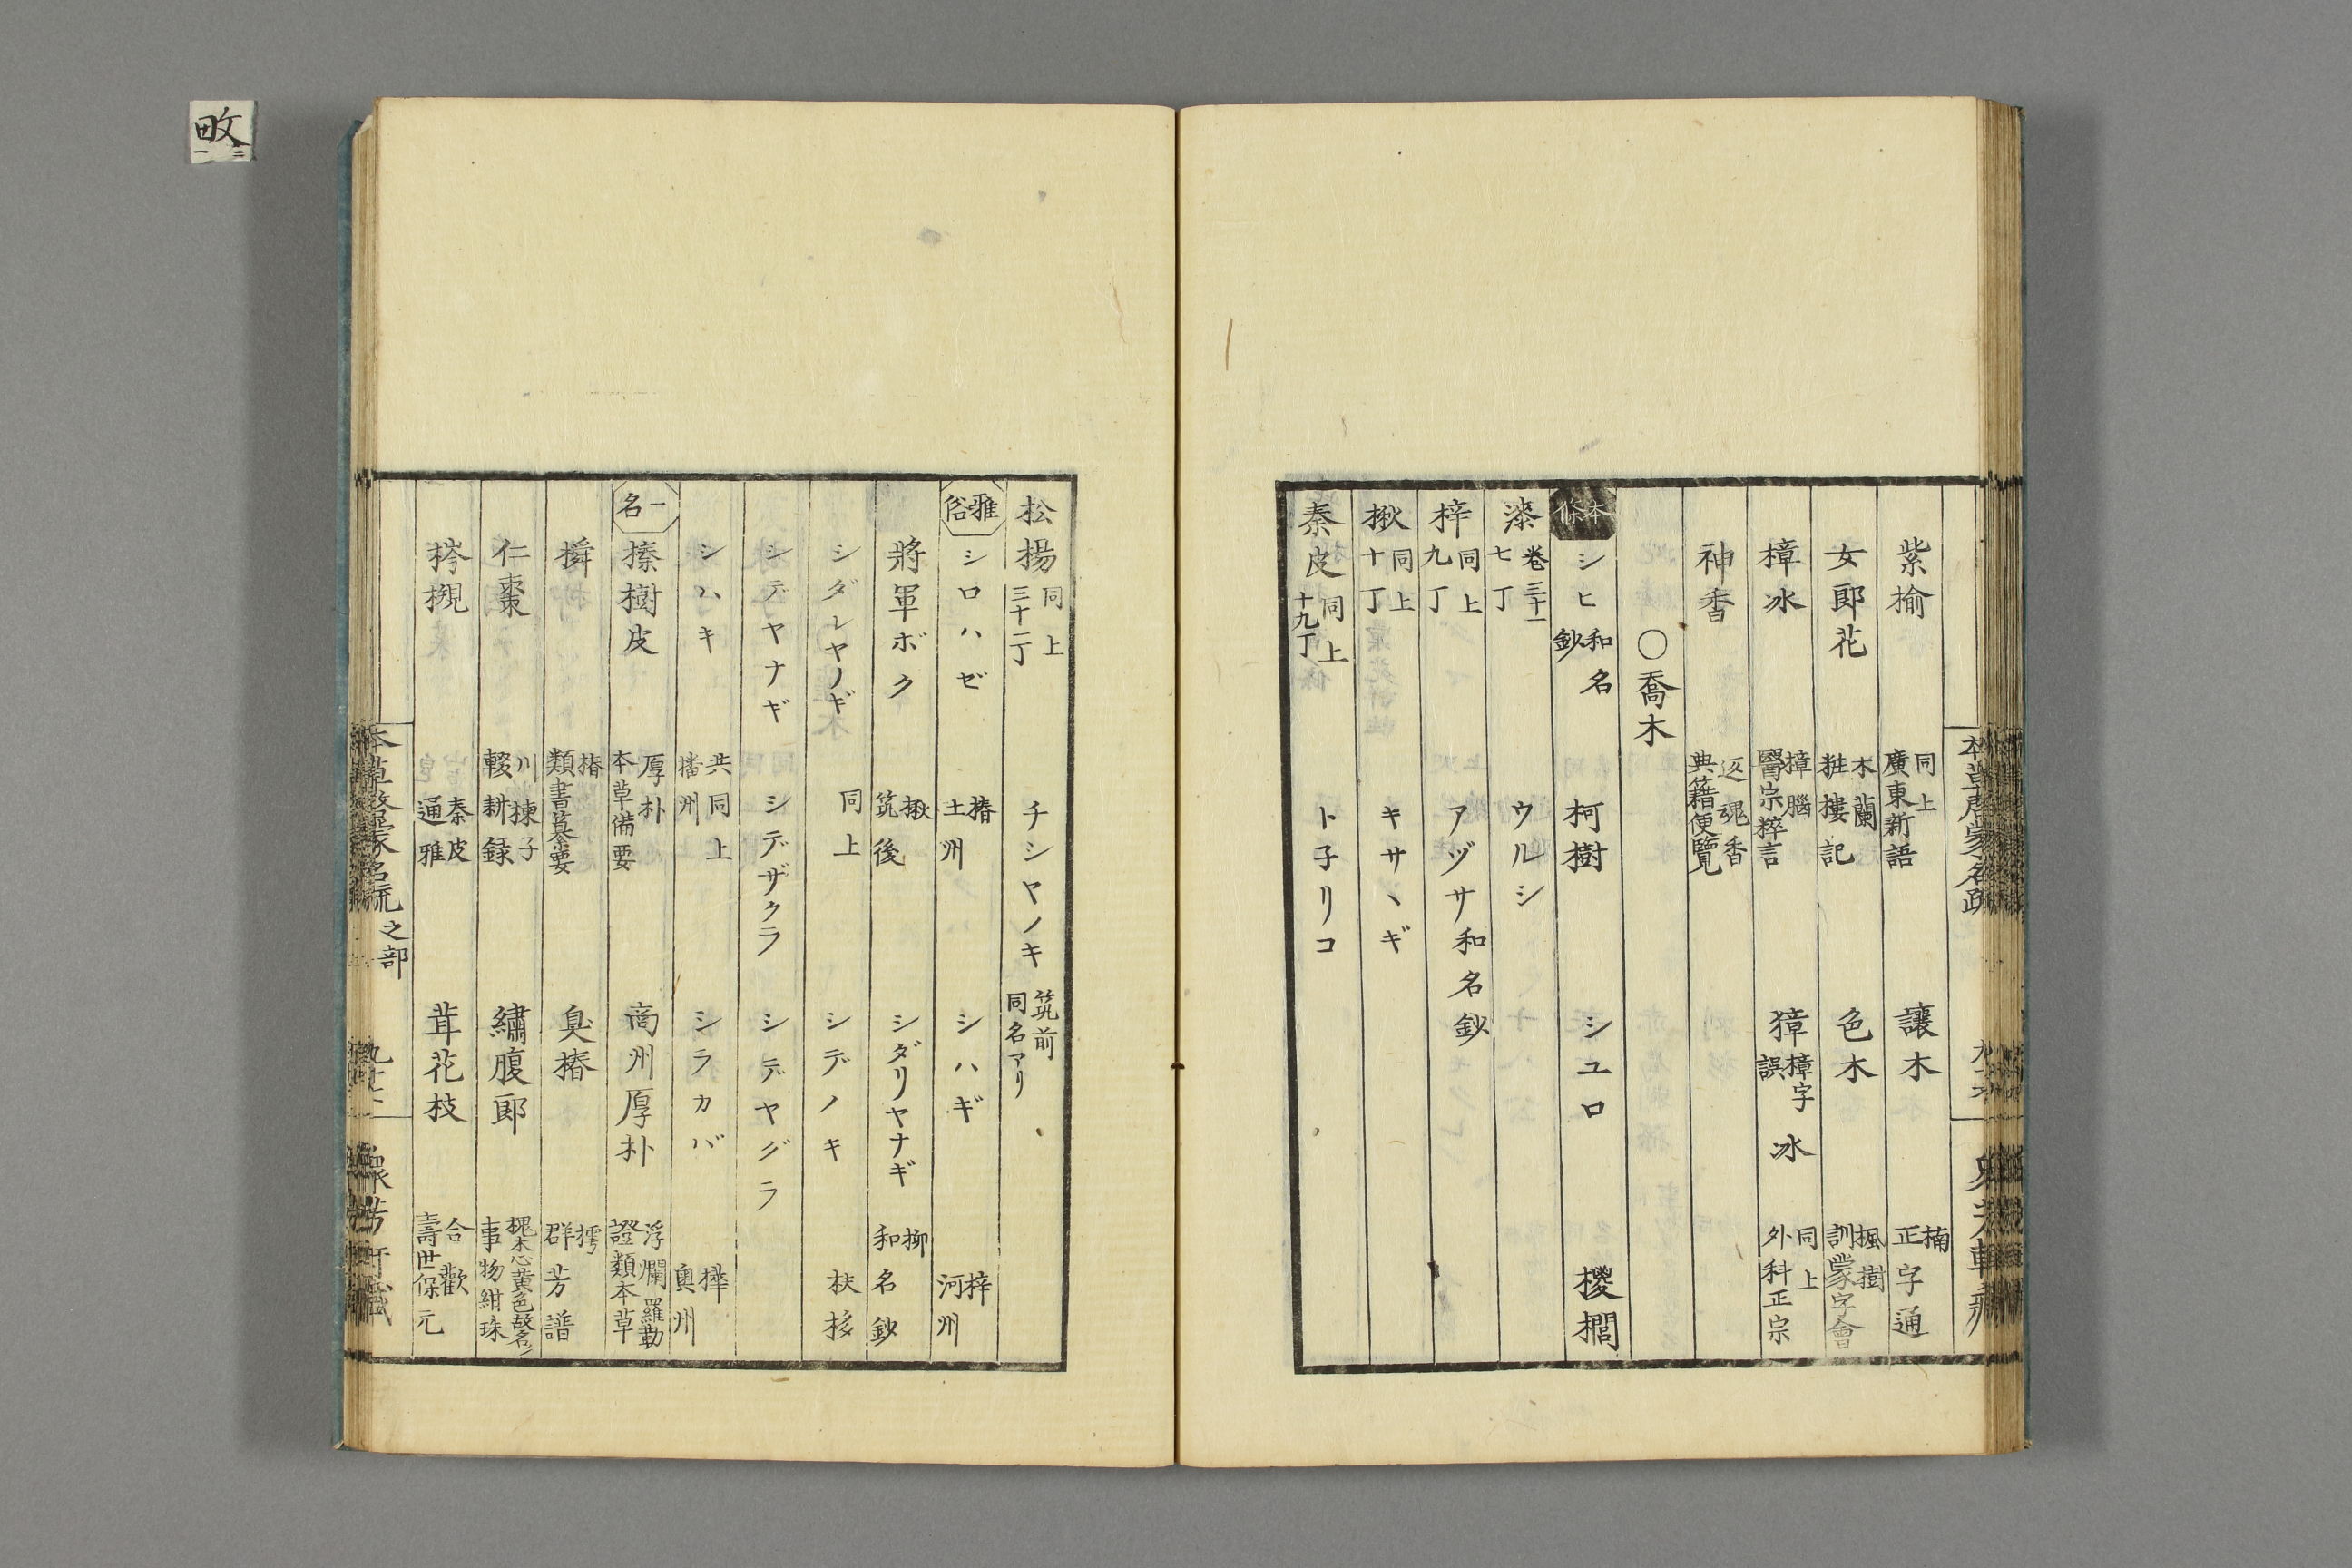 畋
一 二
本草啓蒙名疏
紫楡 同上 廣東新語 讓木 楠 正字通
女郎花 木蘭 粧樓記 色木 楓樹 訓蒙字會
樟冰 樟腦 醫宗粹言 獐樟字誤冰 同上 外科正宗
神香 返魂香 典籍便覽
〇喬木
本條 シヒ 和名鈔 柯樹 シユロ 椶櫚
漆 卷三十一 七丁 ウルシ
梓 同上 九丁 アヅサ 和名鈔
楸 同上 十丁 キサヽギ
秦皮 同上 十九丁 ト子リコ
松楊 同上 三十二丁 チシヤノキ 筑前 同名アリ
雅俗 シロハゼ 椿 土州 シハギ 梓 河州
將軍ボク 楸 筑後 シダリヤナギ 柳 和名鈔
シダレヤノギ 同上 シデノキ 扶栘
シデヤナギ シデザクラ シデヤグラ
シハキ 共同上 播州 シラカバ 樺 奥州
一名 榛樹皮 厚朴 本草備要 商州厚朴 浮爛羅勒 證類本草
橓 椿 類書纂要 臭椿 樗 群芳譜
仁棗 川揀子 輟耕録 繡腹郎 槐木心黄色故名 事物紺珠
梣槻 秦皮 通雅 茸花枝 合歡 壽世保元
本草啓蒙名疏 之部